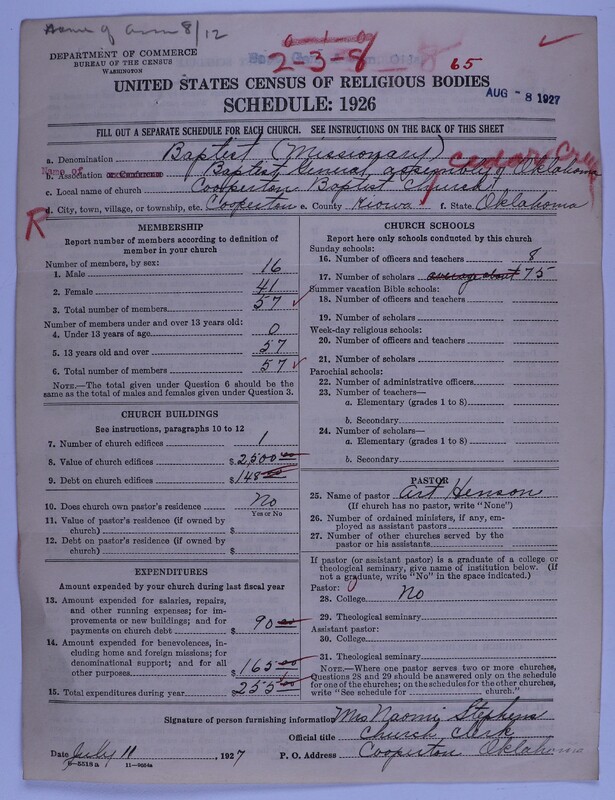 Name of assn 8/12
0 1 0
2-3-8 8 65
DEPARTMENT OF COMMERCE
BUREAU OF THE CENSUS
WASHINGTON
UNITED STATES CENSUS OF RELIGIOUS BODIES
AUG -8 1927
SCHEDULE: 1926
FILL OUT A SEPARATE SCHEDULE FOR EACH CHURCH. SEE INSTRUCTIONS ON THE BACK OF THIS SHEET
a. Denomination Baptist (Missionary)
Name of Cedar Creek
b. Association or Conference Baptist General assembly of Oklahoma
c. Local name of church Cooperton Baptist Church
R
d. City, town, village, or township, etc. Cooperton e. County Kiowa f. State Oklahoma
MEMBERSHIP
Report number of members according to definition of
member in your church
Number of members, by sex:
1. Male 16
2. Female 41
3. Total number of members 57
Number of members under and over 13 years old:
4. Under 13 years of age 0
5. 13 years old and over 57
6. Total number of members 57
NOTE.—The total given under Question 6 should be the
same as the total of males and females given under Question 3.
CHURCH BUILDINGS
See instructions, paragraphs 10 to 12
7. Number of church edifices 1
8. Value of church edifices $2,500.00
9. Debt on church edifices $148.00
10. Does church own pastor's residence No
Yes or No
11. Value of pastor's residence (if owned by
church) $
12. Debt on pastor's residence (if owned by
church) $
EXPENDITURES
Amount expended by your church during last fiscal year
13. Amount expended for salaries, repairs,
and other running expenses; for im-
provements or new buildings; and for
payments on church debt $ 90.00
14. Amount expended for benevolences,
including home and foreign missions; for
denominational support; and for all
other purposes $165.00
15. Total expenditures during year 255.00
CHURCH SCHOOLS
Report here only schools conducted by this church
Sunday schools:
16. Number of officers and teachers 8
17. Number of scholars average about 75
Summer vacation Bible schools:
18. Number of officers and teachers
19. Number of scholars
Week-day religious schools:
20. Number of officers and teachers
21. Number of scholars
Parochial schools:
22. Number of administrative officers
23. Number of teachers—
a. Elementary (grades 1 to 8)
b. Secondary
24. Number of scholars—
a. Elementary (grades 1 to 8)
b. Secondary
PASTOR
25. Name of pastor Art Henson
(If church has no pastor, write "None")
26. Number of ordained ministers, if any, em-
ployed as assistant pastors
27. Number of other churches served by the
pastor or his assistants
If pastor (or assistant pastor) is a graduate of a college or
theological seminary, give name of institution below. (If
not a graduate, write "No" in the space indicated.)
Pastor: 0
28. College No
29. Theological seminary
Assistant pastor:
30. College
31. Theological seminary
NOTE.—Where one pastor serves two or more churches,
Questions 28 and 29 should be answered only on the schedule
for one of the churches; on the schedules for the other churches,
write "See schedule for church."
Signature of person furnishing information Mrs Naomi Stephens
Official title Church Clerk
Date July 11, 1927 P. O. Address Cooperton Oklahoma
11-9084a